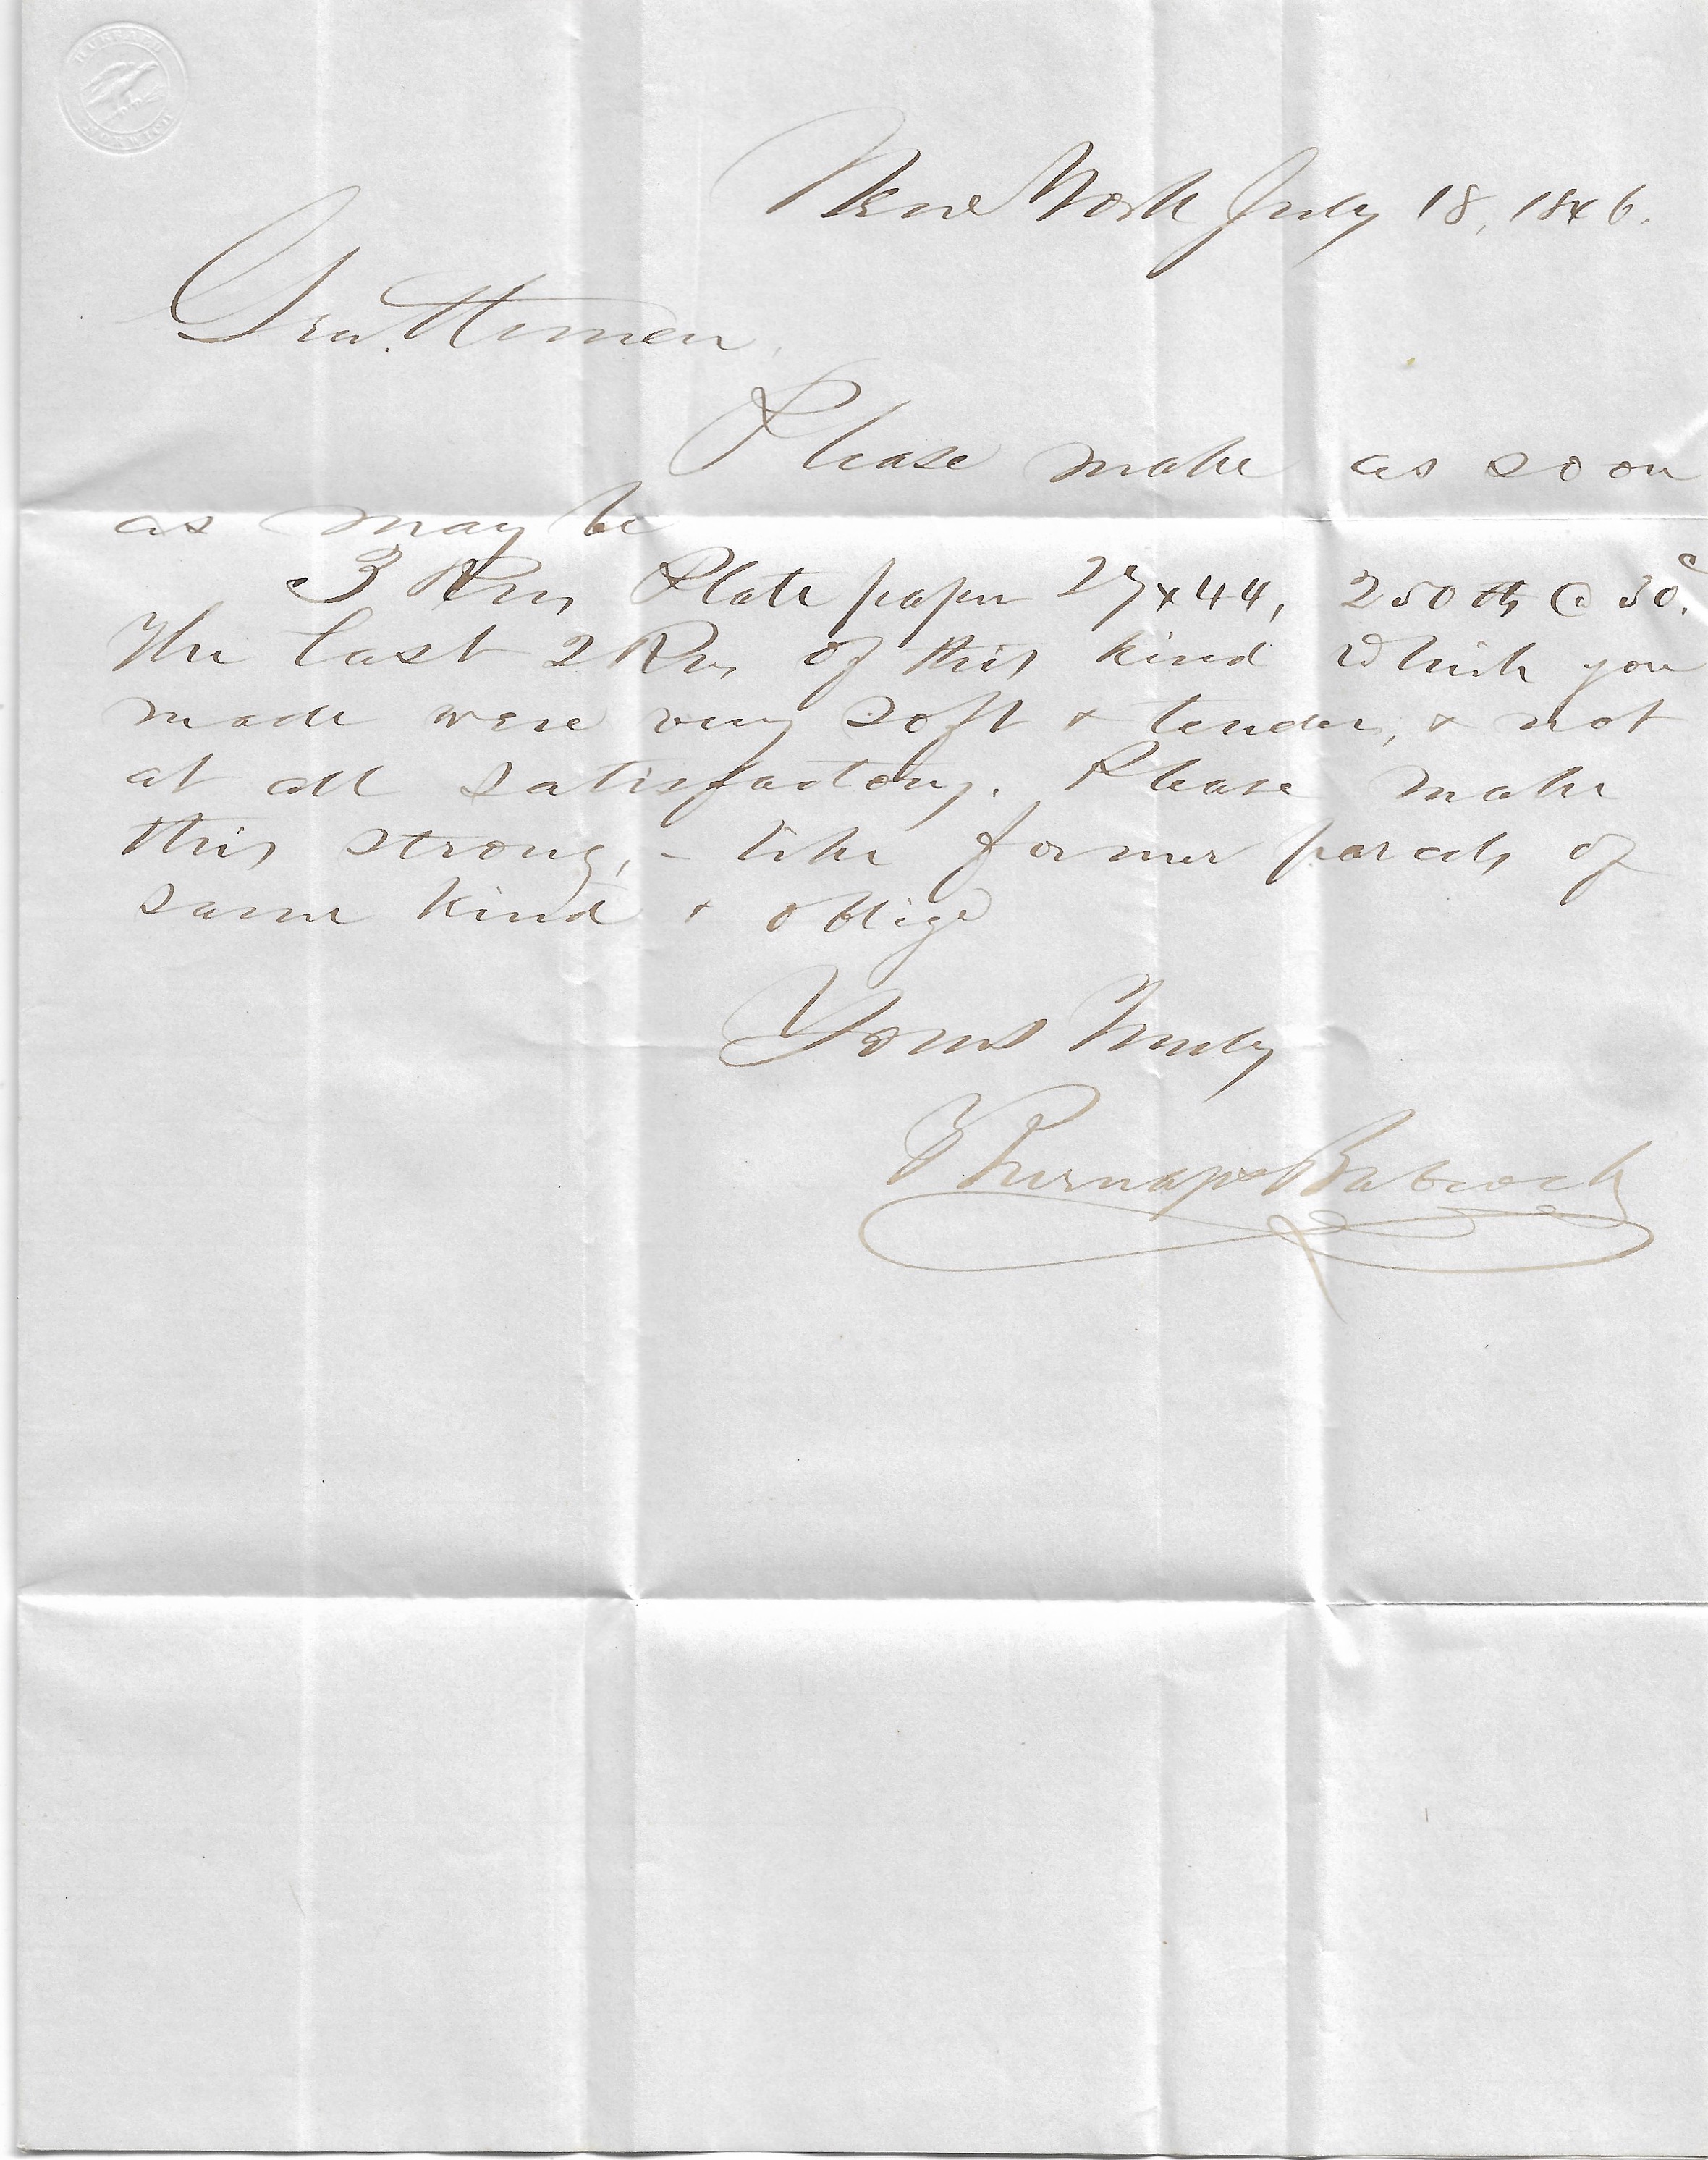 HUBBARD
NORWICH
New York July 18, 1846.
Gentlemen,
Please make as soon
as may be
3 Rms Plate paper 29x44, 250 lb @ 30c.
The last 2 Rms of this kind which you
made were very soft & tender, & not
at all satisfactory. Please make
this strong, - like former parcels of
same kind & oblige
Yours Truly
Burnap & Babcock